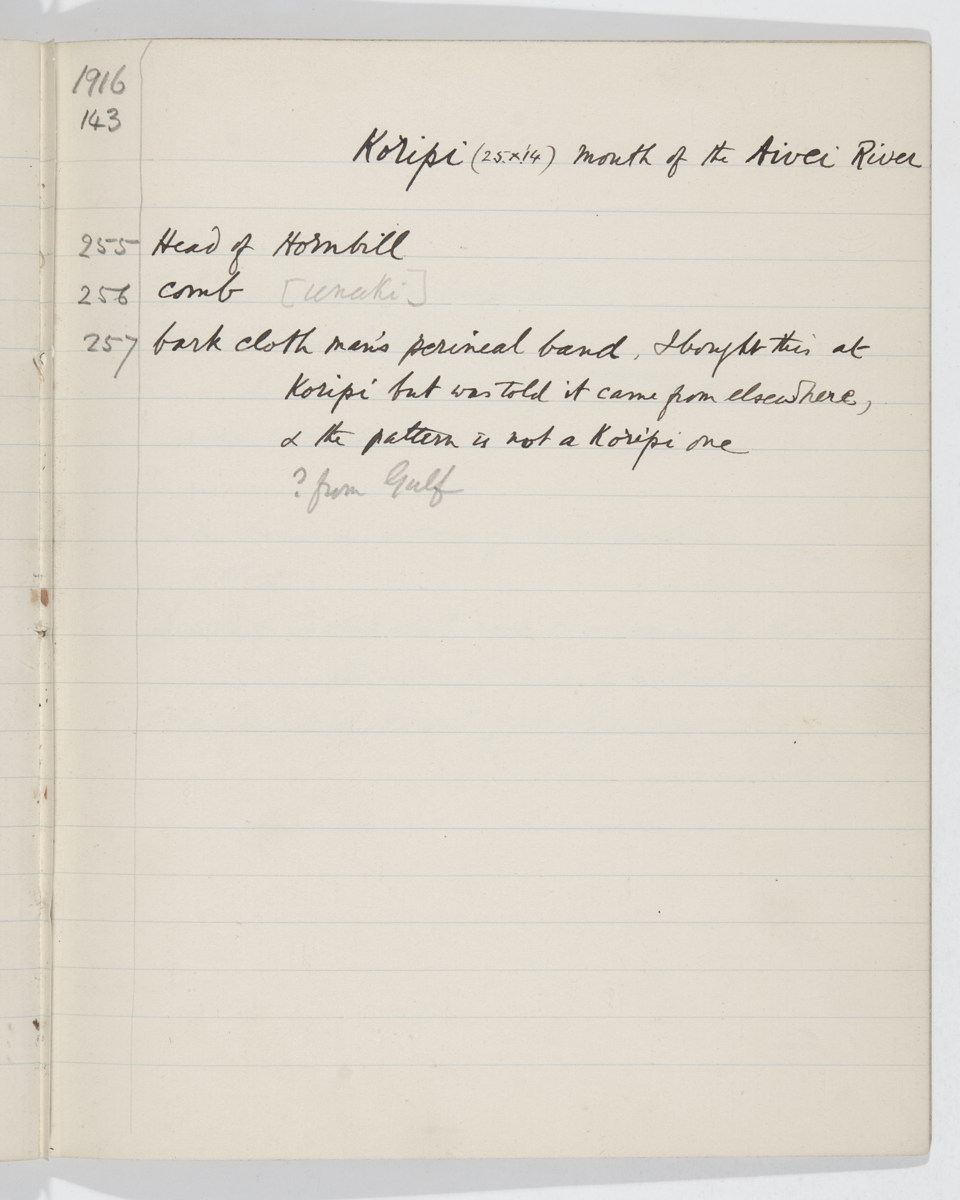 1916
143
Koripi (25.x.14) mouth of the Aivei River
255 Head of Hornbill
256 comb [unaki]
257 bark cloth man's perineal band, I bought this at
Koripi but was told it came from elsewhere,
& the pattern is not a Koripi one
? from Gulf